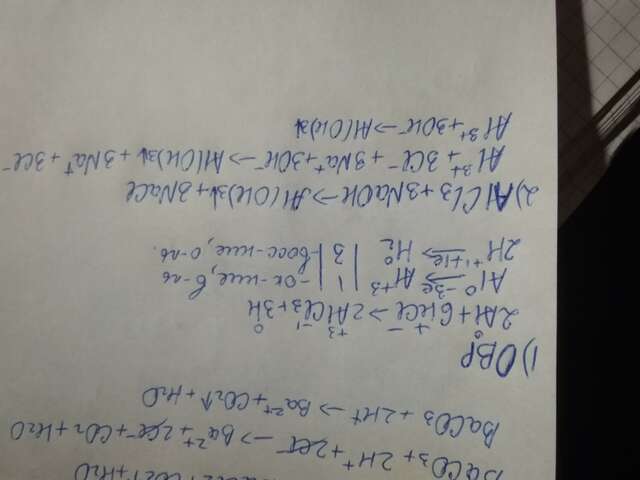 + H2O
BaCO3 + 2H⁺ + 2Cl⁻ → Ba²⁺ + 2Cl⁻ + CO2 + H2O
BaCO3 + 2H⁺ → Ba²⁺ + CO2↑ + H2O
1) ОВР
2Al⁰ + 6H⁺Cl⁻ → 2Al⁺³Cl3⁻¹ + 3H⁰
Al⁰ –3e→ Al⁺³ | 1 | -ок-ние, в-ль
2H⁺¹ +1e→ H2⁰ | 3 | -восс-ние, о-ль.
2) AlCl3 + 3NaOH → Al(OH)3↓ + 3NaCl
Al³⁺ + 3Cl⁻ + 3Na⁺ + 3OH⁻ → Al(OH)3↓ + 3Na⁺ + 3Cl⁻
Al³⁺ + 3OH⁻ → Al(OH)3↓